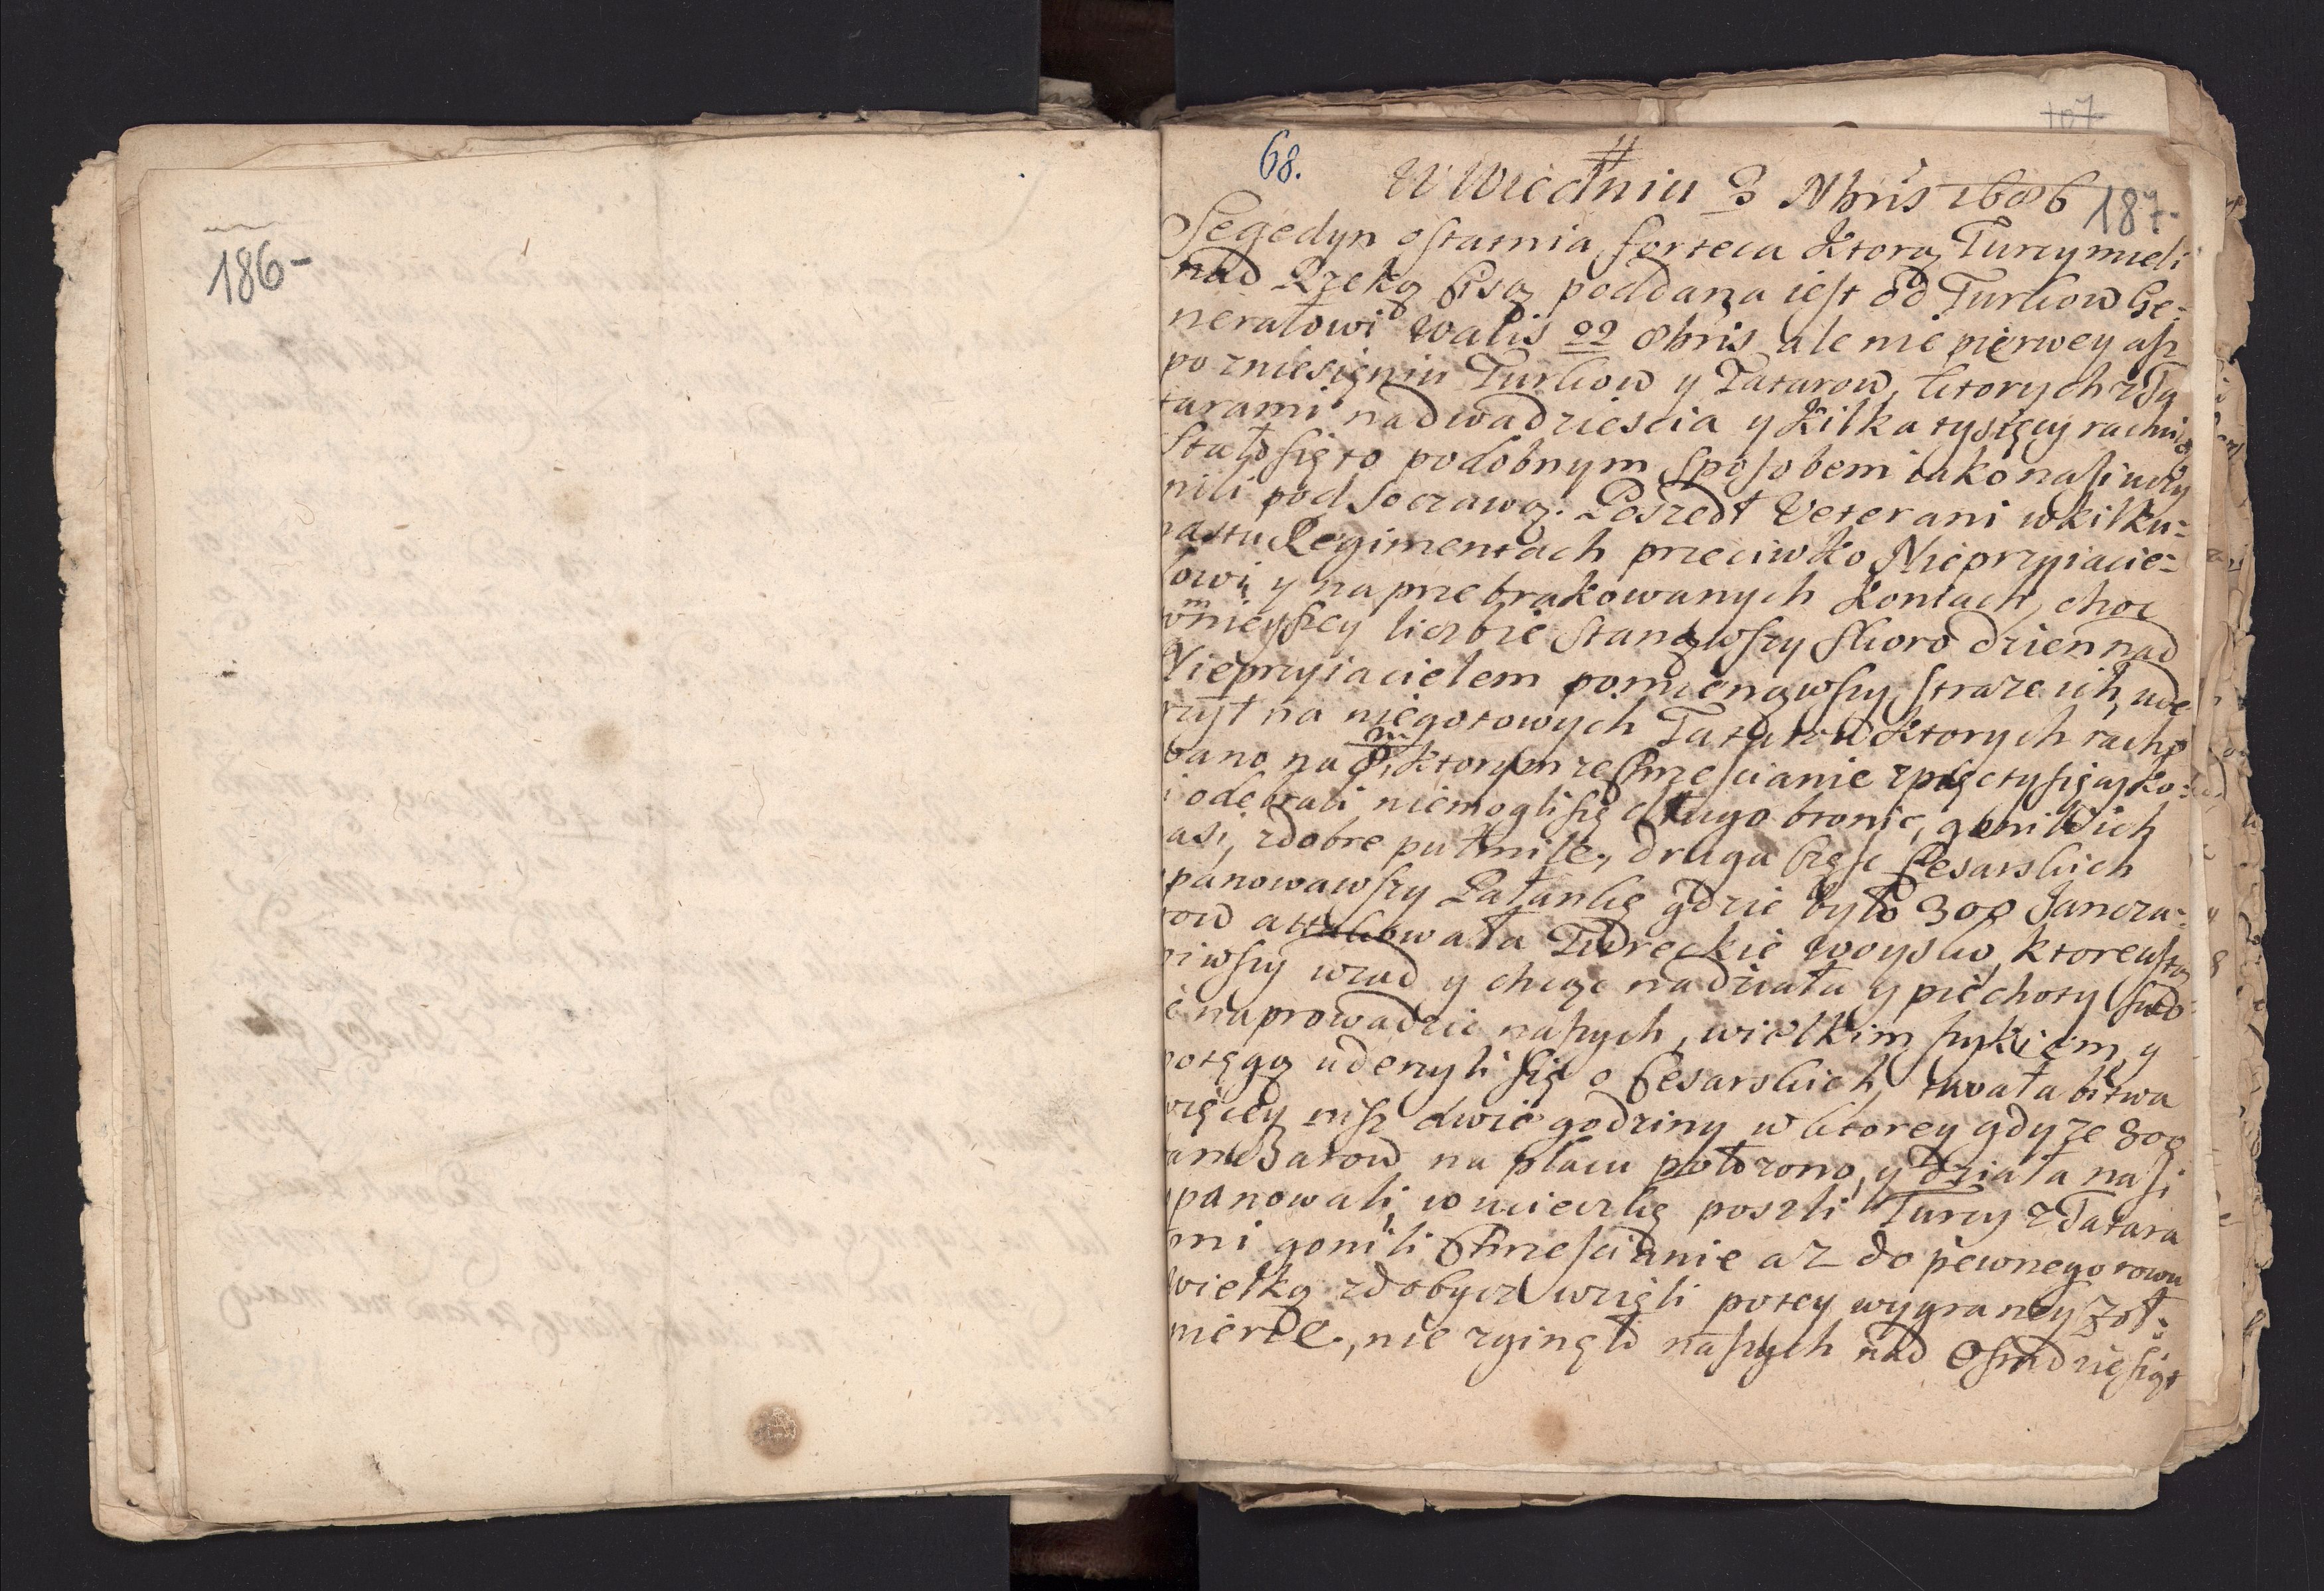 186-
107
68.
W Wiedniu 3 Nbris 1686
187-
Segedyn ostatnia forteca ktorą Turcy mieli
nad Rzeką Cisą poddana iest od Turkow Ge-
nerałowi Walis 22 8bris ale nie pierwey asz
po zniesięniu Turkow y Tatarow, ktorych z Ta
tarami nadwadziescia y kilka tysięcy rachuią
Stało się to podobnym sposobem iako nasi uczy
nili pod Soczawą. Poszedł Veterani w kilku-
nastu Regimentach przeciwko Nieprzyiacie-
lowi y na przebrakowanych koniach, choc
w mnieyszey liczbie stanąwszy skoro dzien nad
Nieprzyiacielem pominąwszy straze ich, ude
rzył na niegotowych Tatarow ktorych racho
wano na 8/m ktorym ze Chrzescianie zpięcty się ko-
i odebrali niemogli się długo bronic, gonili ich
nasi, z dobre puł mile, druga częsc Cesarskich
opanowawszy Pałankę gdzie było 300 Jancza-
row attakowała Tureckie woysko, ktore ustą
piwszy wzad y chcąc nadziała y piechoty swo
ie naprowadzic naszych, wielkim szykiem y
potęgą uderzyli się o Cesarskich, trwała bitwa
więcey nisz dwie godziny w ktorey gdy ze 300
anczarow na placu położono, y działa nasi
opanowali, w ucieczkę poszli Turcy z Tatara
mi gonili Chrzescianie az do pewnego rowu
wielką zdobycz wzięli potey wygraney zoł-
nierze, nie zginęło naszych nad osmdziesiąt